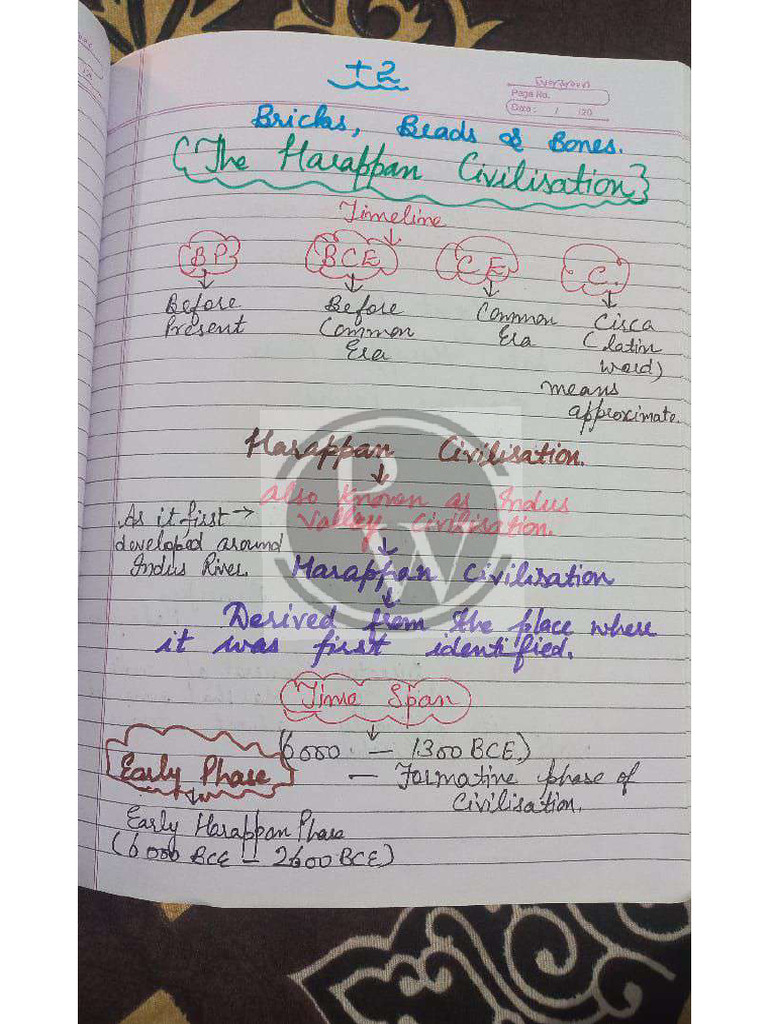 +2
Evergreen
Page No.
Date: / /20
Bricks, Beads & Bones.
(The Harappan Civilisation}
Timeline
BP BCE CE C.
Before Present
Before Common Era
Common Era
Cisca (latin word)
means approximate.
Harappan Civilisation.
also known as Indus
Valley Civilisation.
As it first →
developed around
Indus River.
Harappan Civilisation
Derived from the place where
it was first identified.
Time Span
(6000 — 1300 BCE.)
Early Phase
— Formative phase of
Civilisation.
Early Harappan Phase
(6000 BCE — 2600 BCE)